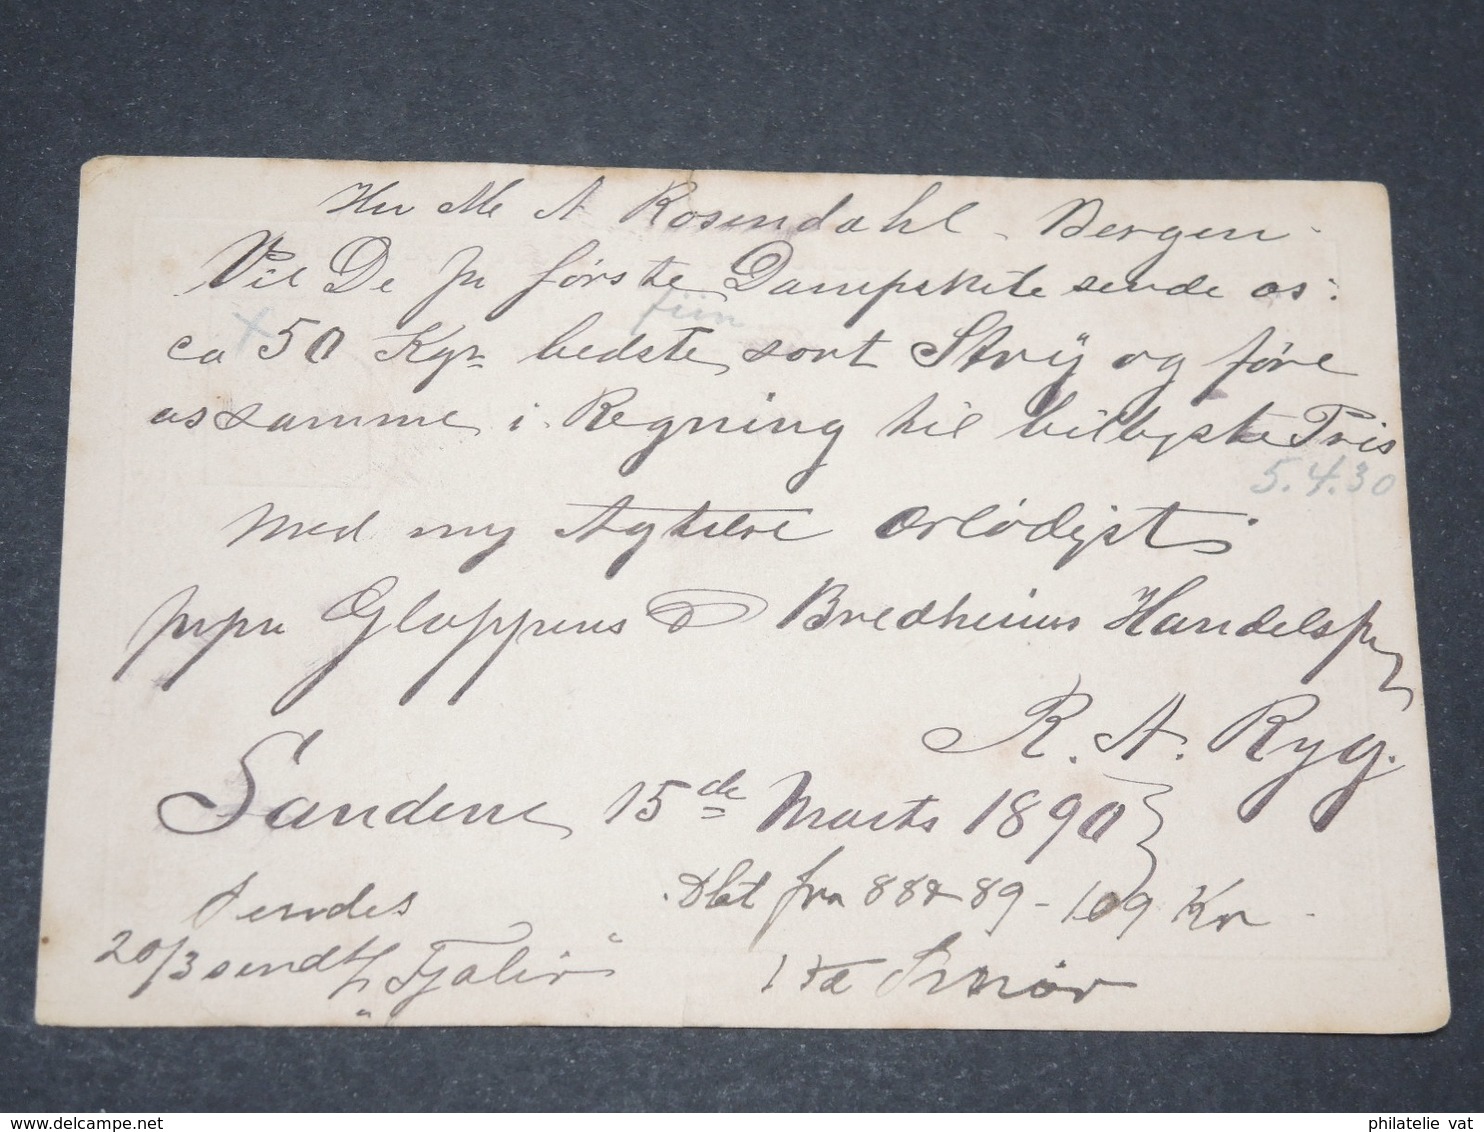 Her M A Rosendahl - Bergen.
Vil De pr første Dampskib sende os:
fiin
ca + 50 Kgr bedste sort Stry og føre
os samme i Regning til billigste Pris
5.4.30
Med my Agtelse ærbødigst
prpr Gloppens & Bredheims Handelsf
R. A. Ryg.
Sandene 15de Marts 1890
Sendes
Dbt fra 88 & 89 - 109 Kr
20/3 sendt "Fjalir"
1ta Smør
philatelie vat